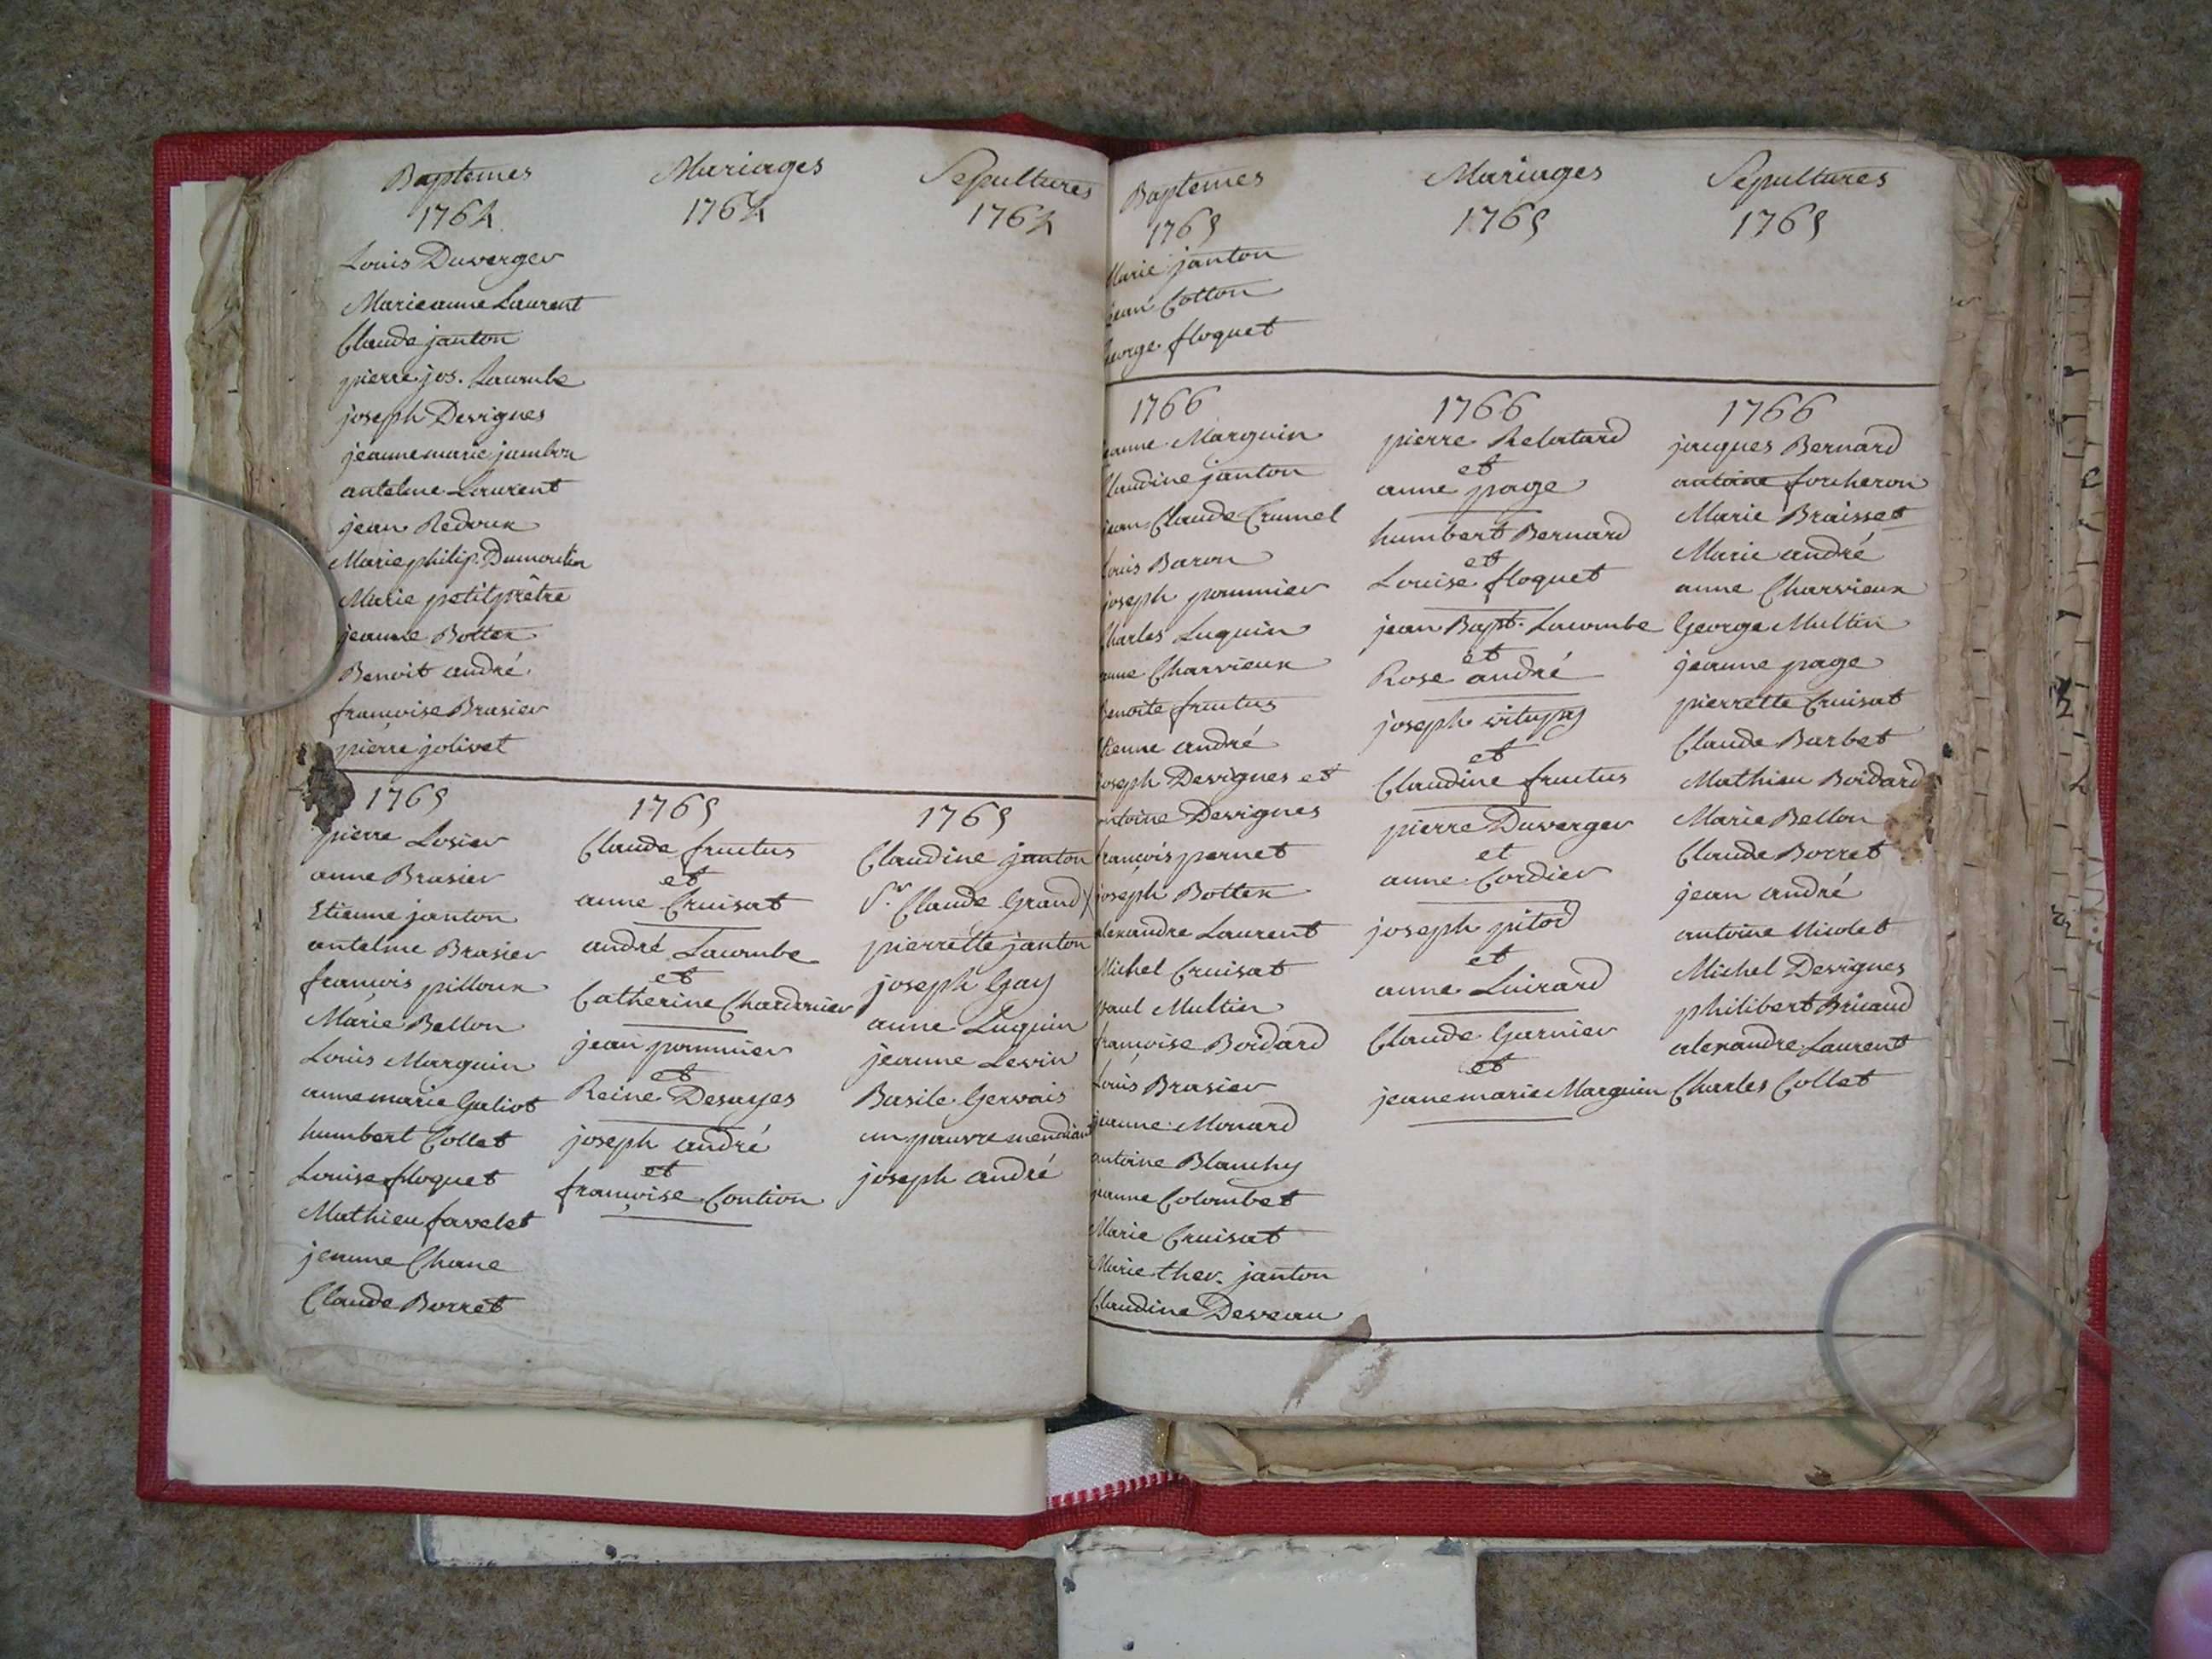 Baptemes
1764
Louis Duverger
Marieanne Laurent
Claude janton
pierre jos. Lacombe
joseph Devignes
jeannemarie jambon
antelme Laurent
jean Redoux
Marie philip. Dumoulin
Marie petitprêtre
jeanne Bottex
Benoit andré
françoise Brasier
pierre jolivet
Mariages
1764
Sepultures
1764
1765
pierre Losier
anne Brasier
Etienne janton
antelme Brasier
françois pilloux
Marie Bellon
Louis Marguin
annemarie Galiot
humbert Collet
Louise floquet
Mathieu favelet
jeanne Chane
Claude Borret
1765
Claude fructus
et
anne Cruisat
andré Lacombe
et
Catherine Chardonier
jean pommier
et
Reine Desayes
joseph andré
et
françoise Contion
1765
Claudine janton
Sr. Claude Grand
pierrette janton
joseph Gay
anne Luquin
jeanne Levin
Basile Gervais
un pauvre mendiant
joseph andré
Baptemes
1765
Marie janton
jean Cotton
George floquet
Mariages
1765
Sepultures
1765
1766
jeanne Marguin
Claudine janton
jean Claude Crumel
Louis Baron
joseph pommier
Charles Luquin
anne Charvieux
Benoite fructus
Etienne andré
joseph Devignes et
antoine Devignes
françois pernet
joseph Bottex
alexandre Laurent
Michel Cruisat
paul Multin
françoise Boidard
Louis Brasier
jeanne Monard
antoine Blanchy
jeanne Colombet
Marie Cruisat
Marie ther. janton
Claudine Deveau
1766
pierre Relatard
et
anne page
humbert Bernard
et
Louise floquet
jean Bapt. Lacombe
et
Rose andré
joseph vitupy
et
Claudine fructus
pierre Duverger
et
anne Cordier
joseph pitod
et
anne Luirard
Claude Garnier
et
jeanemarie Marguin
1766
jacques Bernard
antoine forcheron
Marie Braisset
Marie andré
anne Charvieux
George Multin
jeanne page
pierrette Cruisat
Claude Barbet
Mathieu Boidard
Marie Bellon
Claude Borret
jean andré
antoine Nicolet
Michel Devignes
philibert Bruaud
alexandre Laurent
Charles Collet